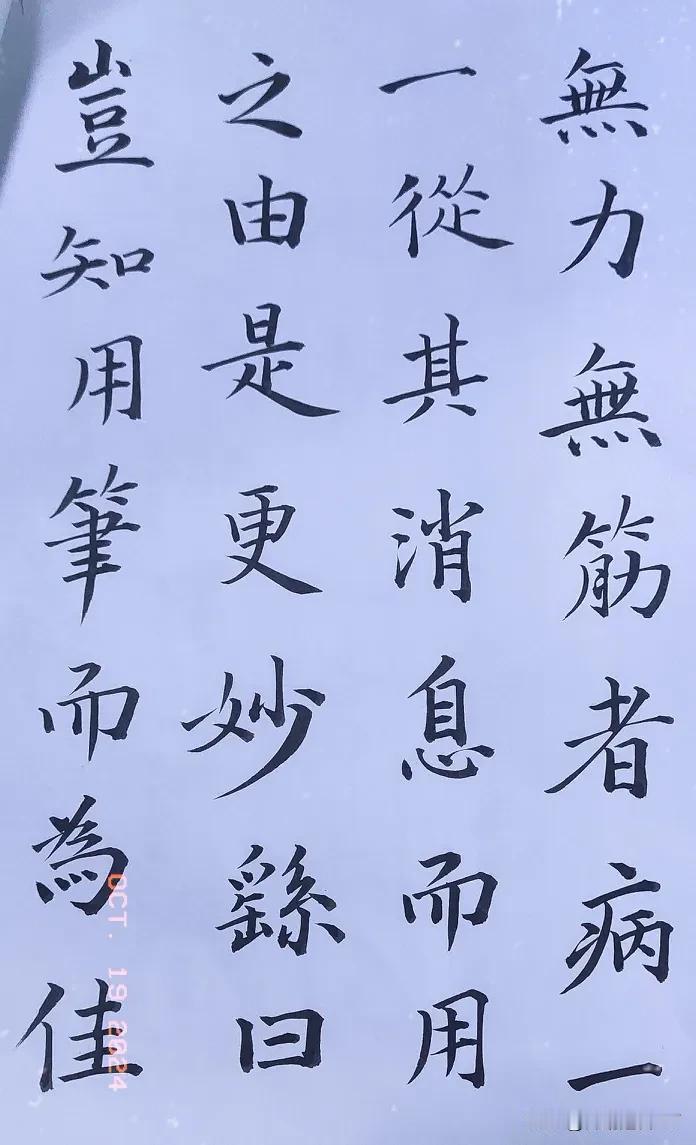 無力無筋者病一
一從其消息而用
之由是更妙繇曰
豈知用筆而為佳
OCT. 19 2024